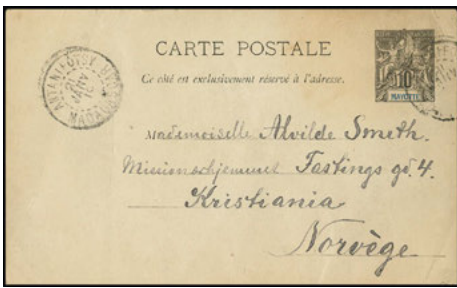 CARTE POSTALE
Ce côté est exclusivement réservé à l'adresse.
10
MAYOTTE
JANV
MADAG
Mademoiselle Alvilde Smeth.
Missionshjemmet Fastings gd. 4.
Kristiania
Norvège